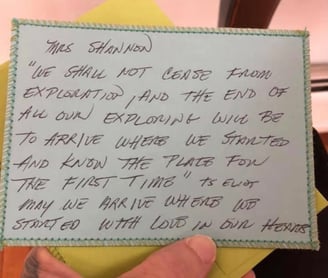 MRS SHANNON
"WE SHALL NOT CEASE FROM
EXPLORATION, AND THE END OF
ALL OUR EXPLORING WILL BE
TO ARRIVE WHERE WE STARTED
AND KNOW THE PLACE FOR
THE FIRST TIME" TS ELIOT
MAY WE ARRIVE WHERE WE
STARTED WITH LOVE IN OUR HEARTS